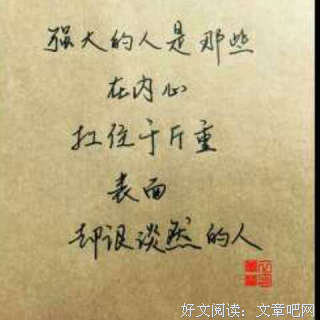 强大的人是那些
在内心
扛住千斤重
表面
却很淡然的人
好文阅读：文章吧网